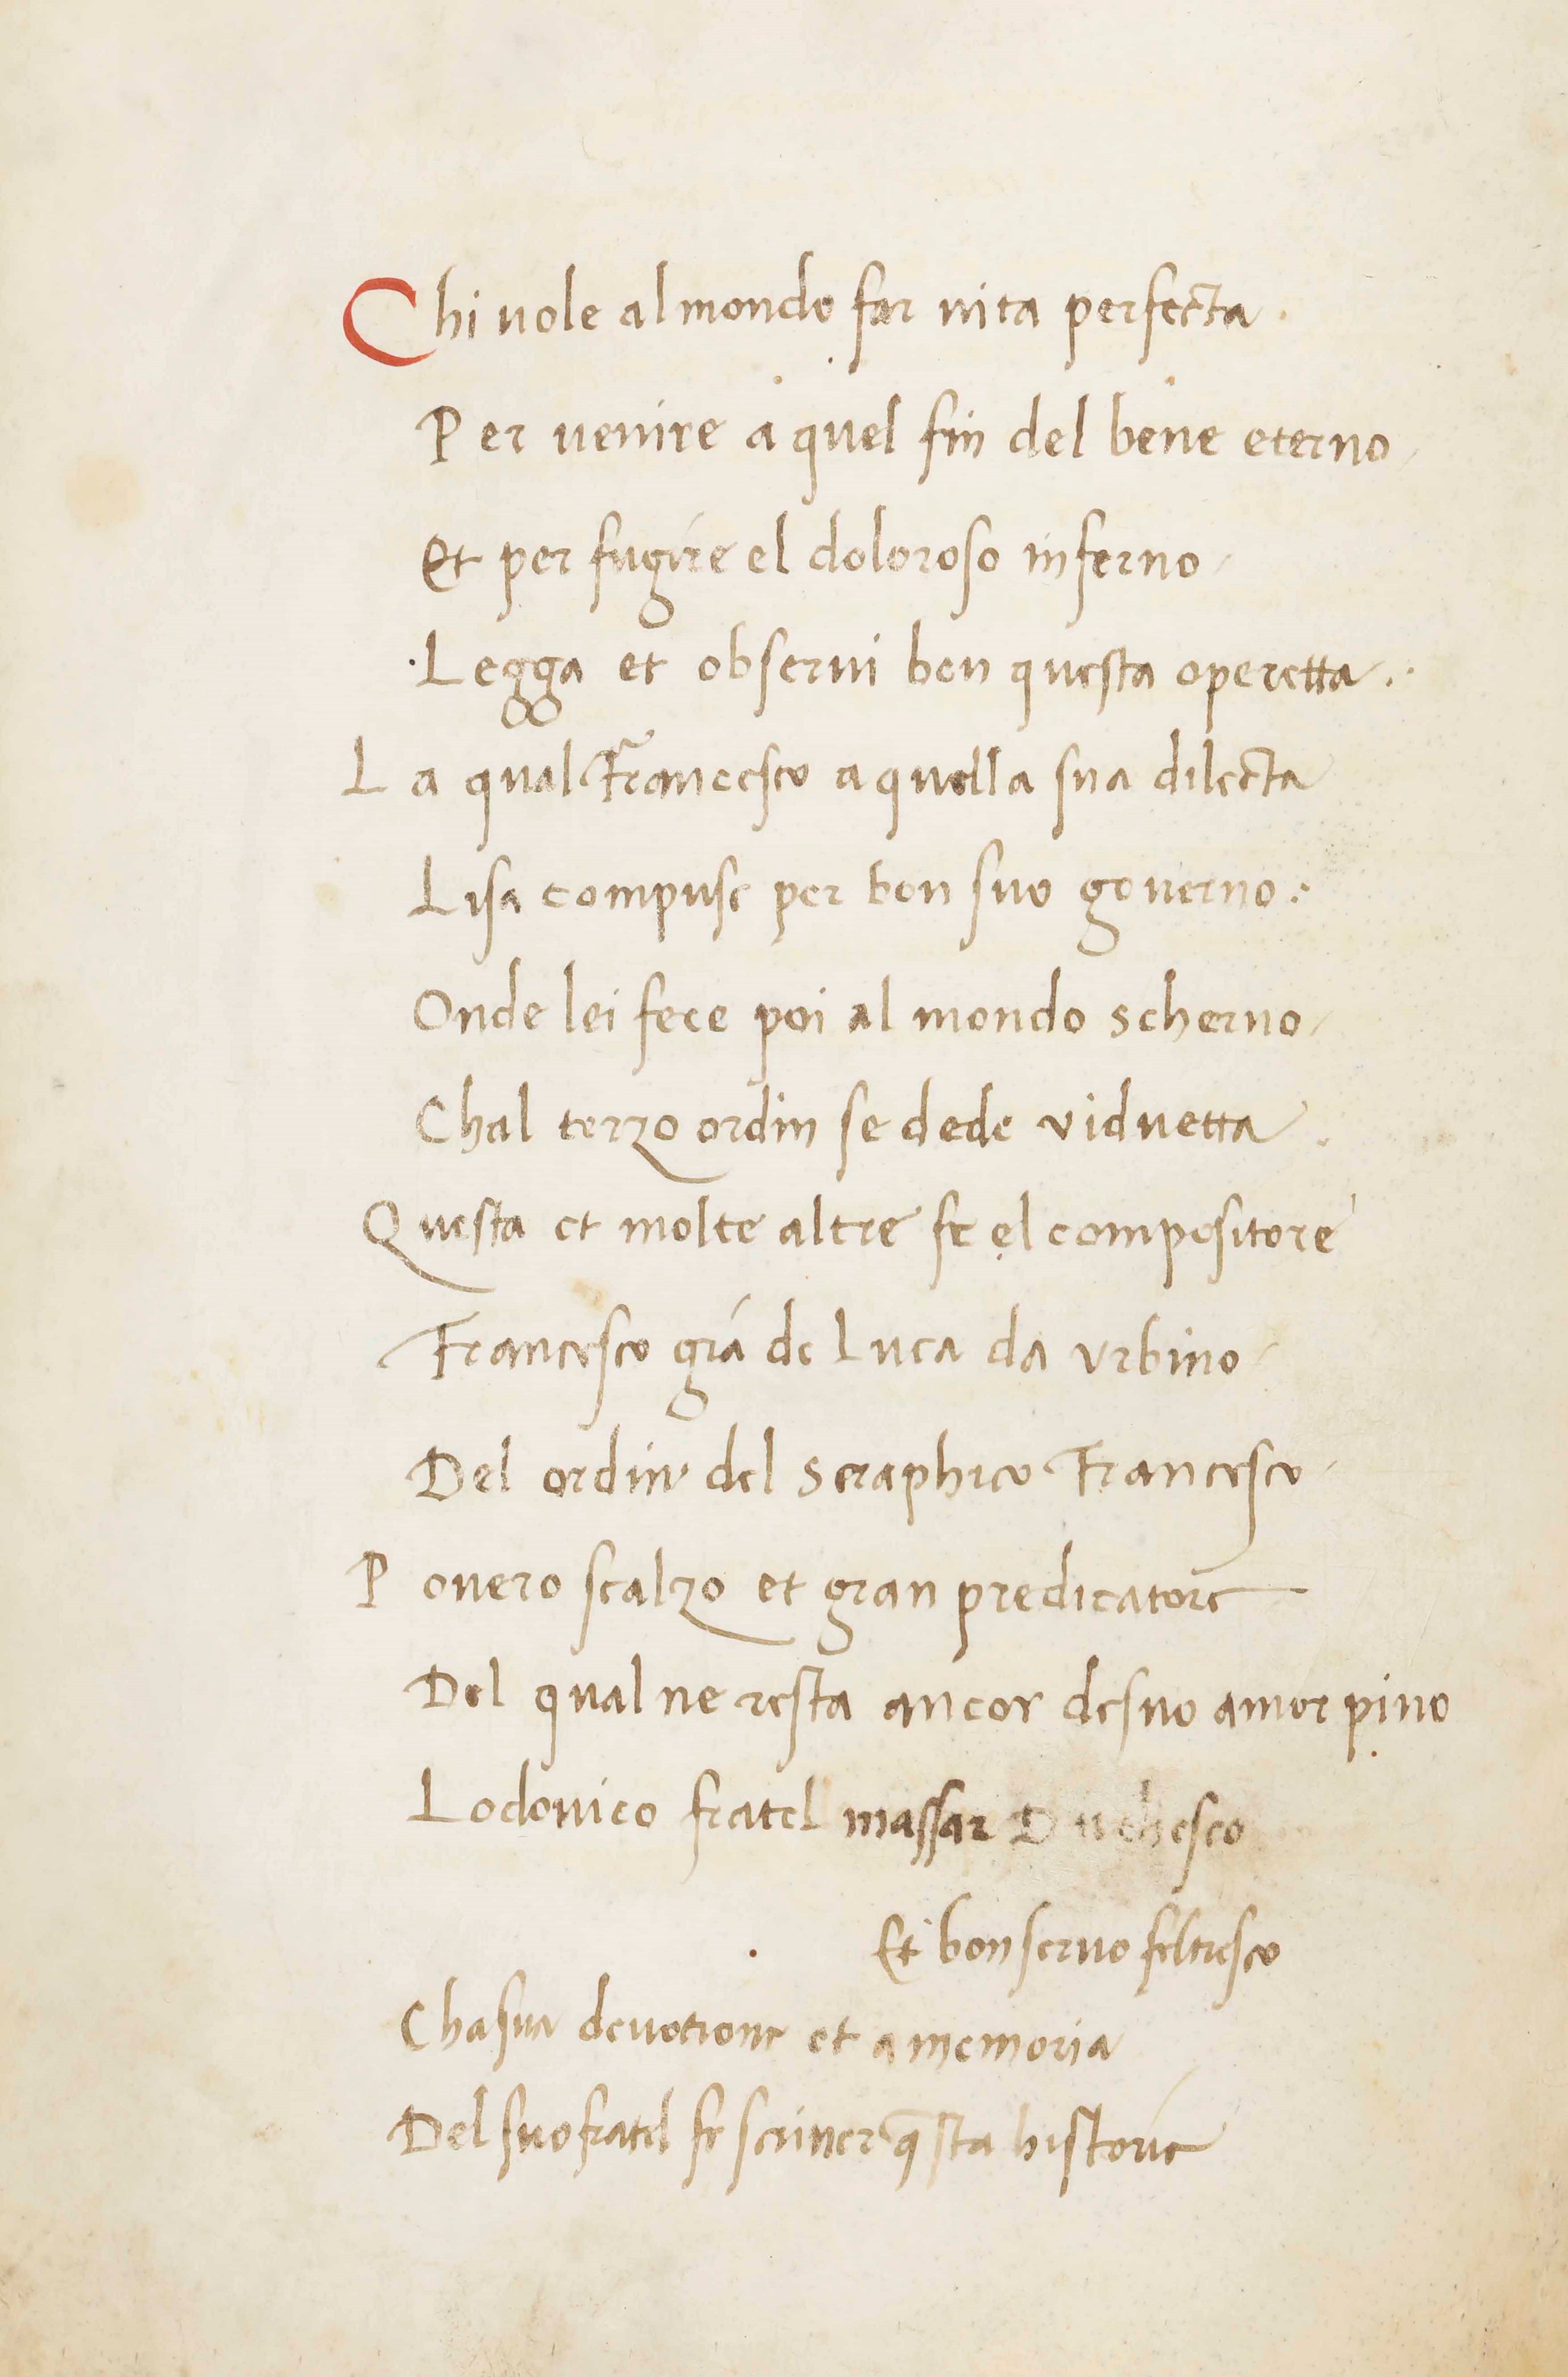 Chi uole al mondo far uita perfecta.
Per uenire a quel fin del bene eterno
Et per fugíre el doloroso inferno
Legga et obserui ben questa operetta.
La qual Francesco a quella sua dilecta
Lisa compuse per bon suo gouerno:
Onde lei fece poi al mondo scherno
Chal terzo ordin se dede viduetta.
Questa et molte altre fe el compositore
Francesco giá de Luca da vrbino
Del ordin del seraphico Francesco
Pouero scalzo et gran predicatore
Del qual ne resta ancor de suo amor pino
Lodouico fratel massar Duchesco
Et bon seruo feltresco
Cha sua deuotione et a memoria
Del suo fratel fe scriuer q̄sta historie